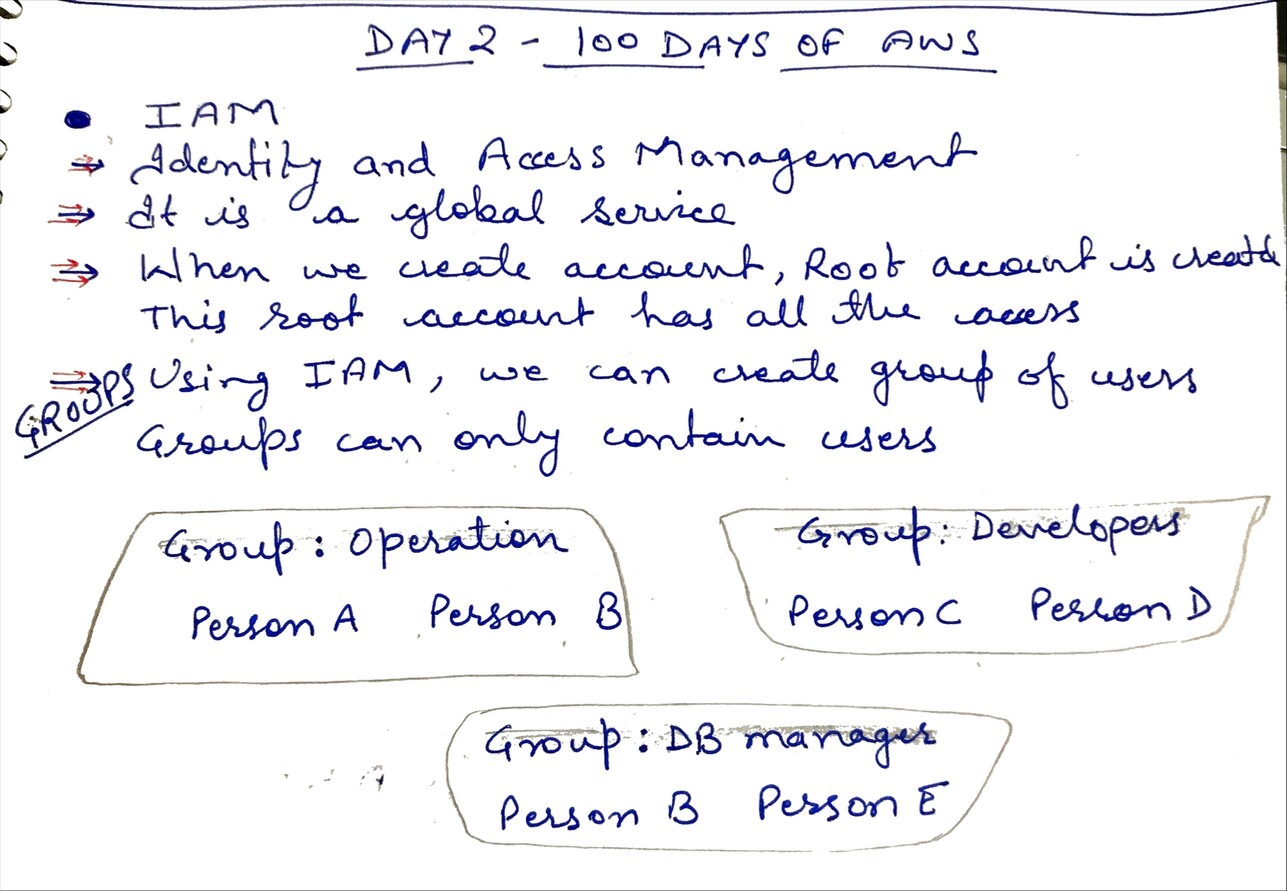 DAY 2 - 100 DAYS OF AWS
• IAM
⇒ Identity and Access Management
⇒ It is a global service
⇒ When we create account, Root account is create
This root account has all the access
GROUPS
⇒ Using IAM, we can create group of users
Groups can only contain users
Group: Operation
Person A Person B
Group: Developers
Person C Person D
Group: DB manager
Person B Person E